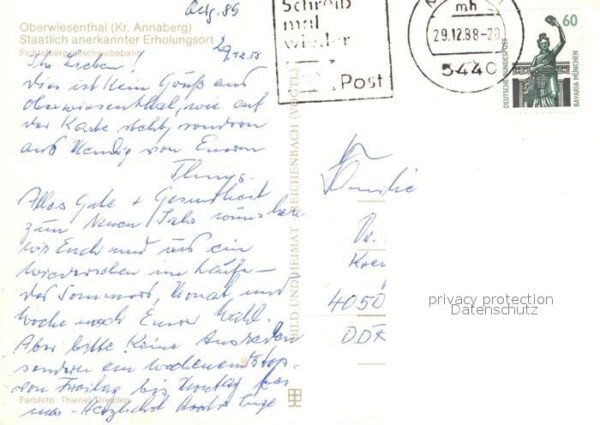 Oberwiesenthal (Kr. Annaberg)
Staatlich anerkannter Erholungsort
Fichtelbergschwebebahn
29.12.88
Ihr Lieben!
dies ist kein Gruß aus
Oberwiesenthal, wie auf
der Karte steht, sondern
aus von Euren
Alles Gute + Gesundheit
zum Neuen Jahr wünschen
wir Euch und uns ein
Wiedersehen im Laufe
des Sommers, Monat und
Woche nach Eurer Wahl.
Aber bitte keine Ausreden
sondern ein Wochenend
von Freitag bis Montag bei
uns - Herzlichst Horst + Inge
Farbfoto: Thienel, Dresden
BILD UND HEIMAT REICHENBACH (VOGTL)
Schreib
mal
wieder
Post
mh
29.12.88-20
5440
60
DEUTSCHE BUNDESPOST
BAVARIA MÜNCHEN
Familie
4050
DDR
privacy protection
Datenschutz